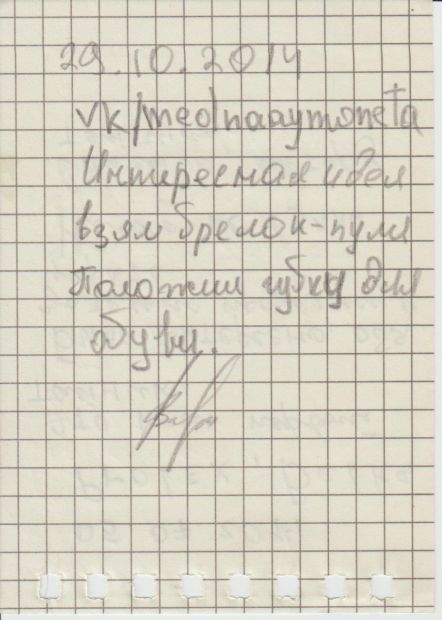 29.10.2014
vk/mednaaymoneta
Интиресная идея
взял брелок-пуля
Положил губку для
обуви.